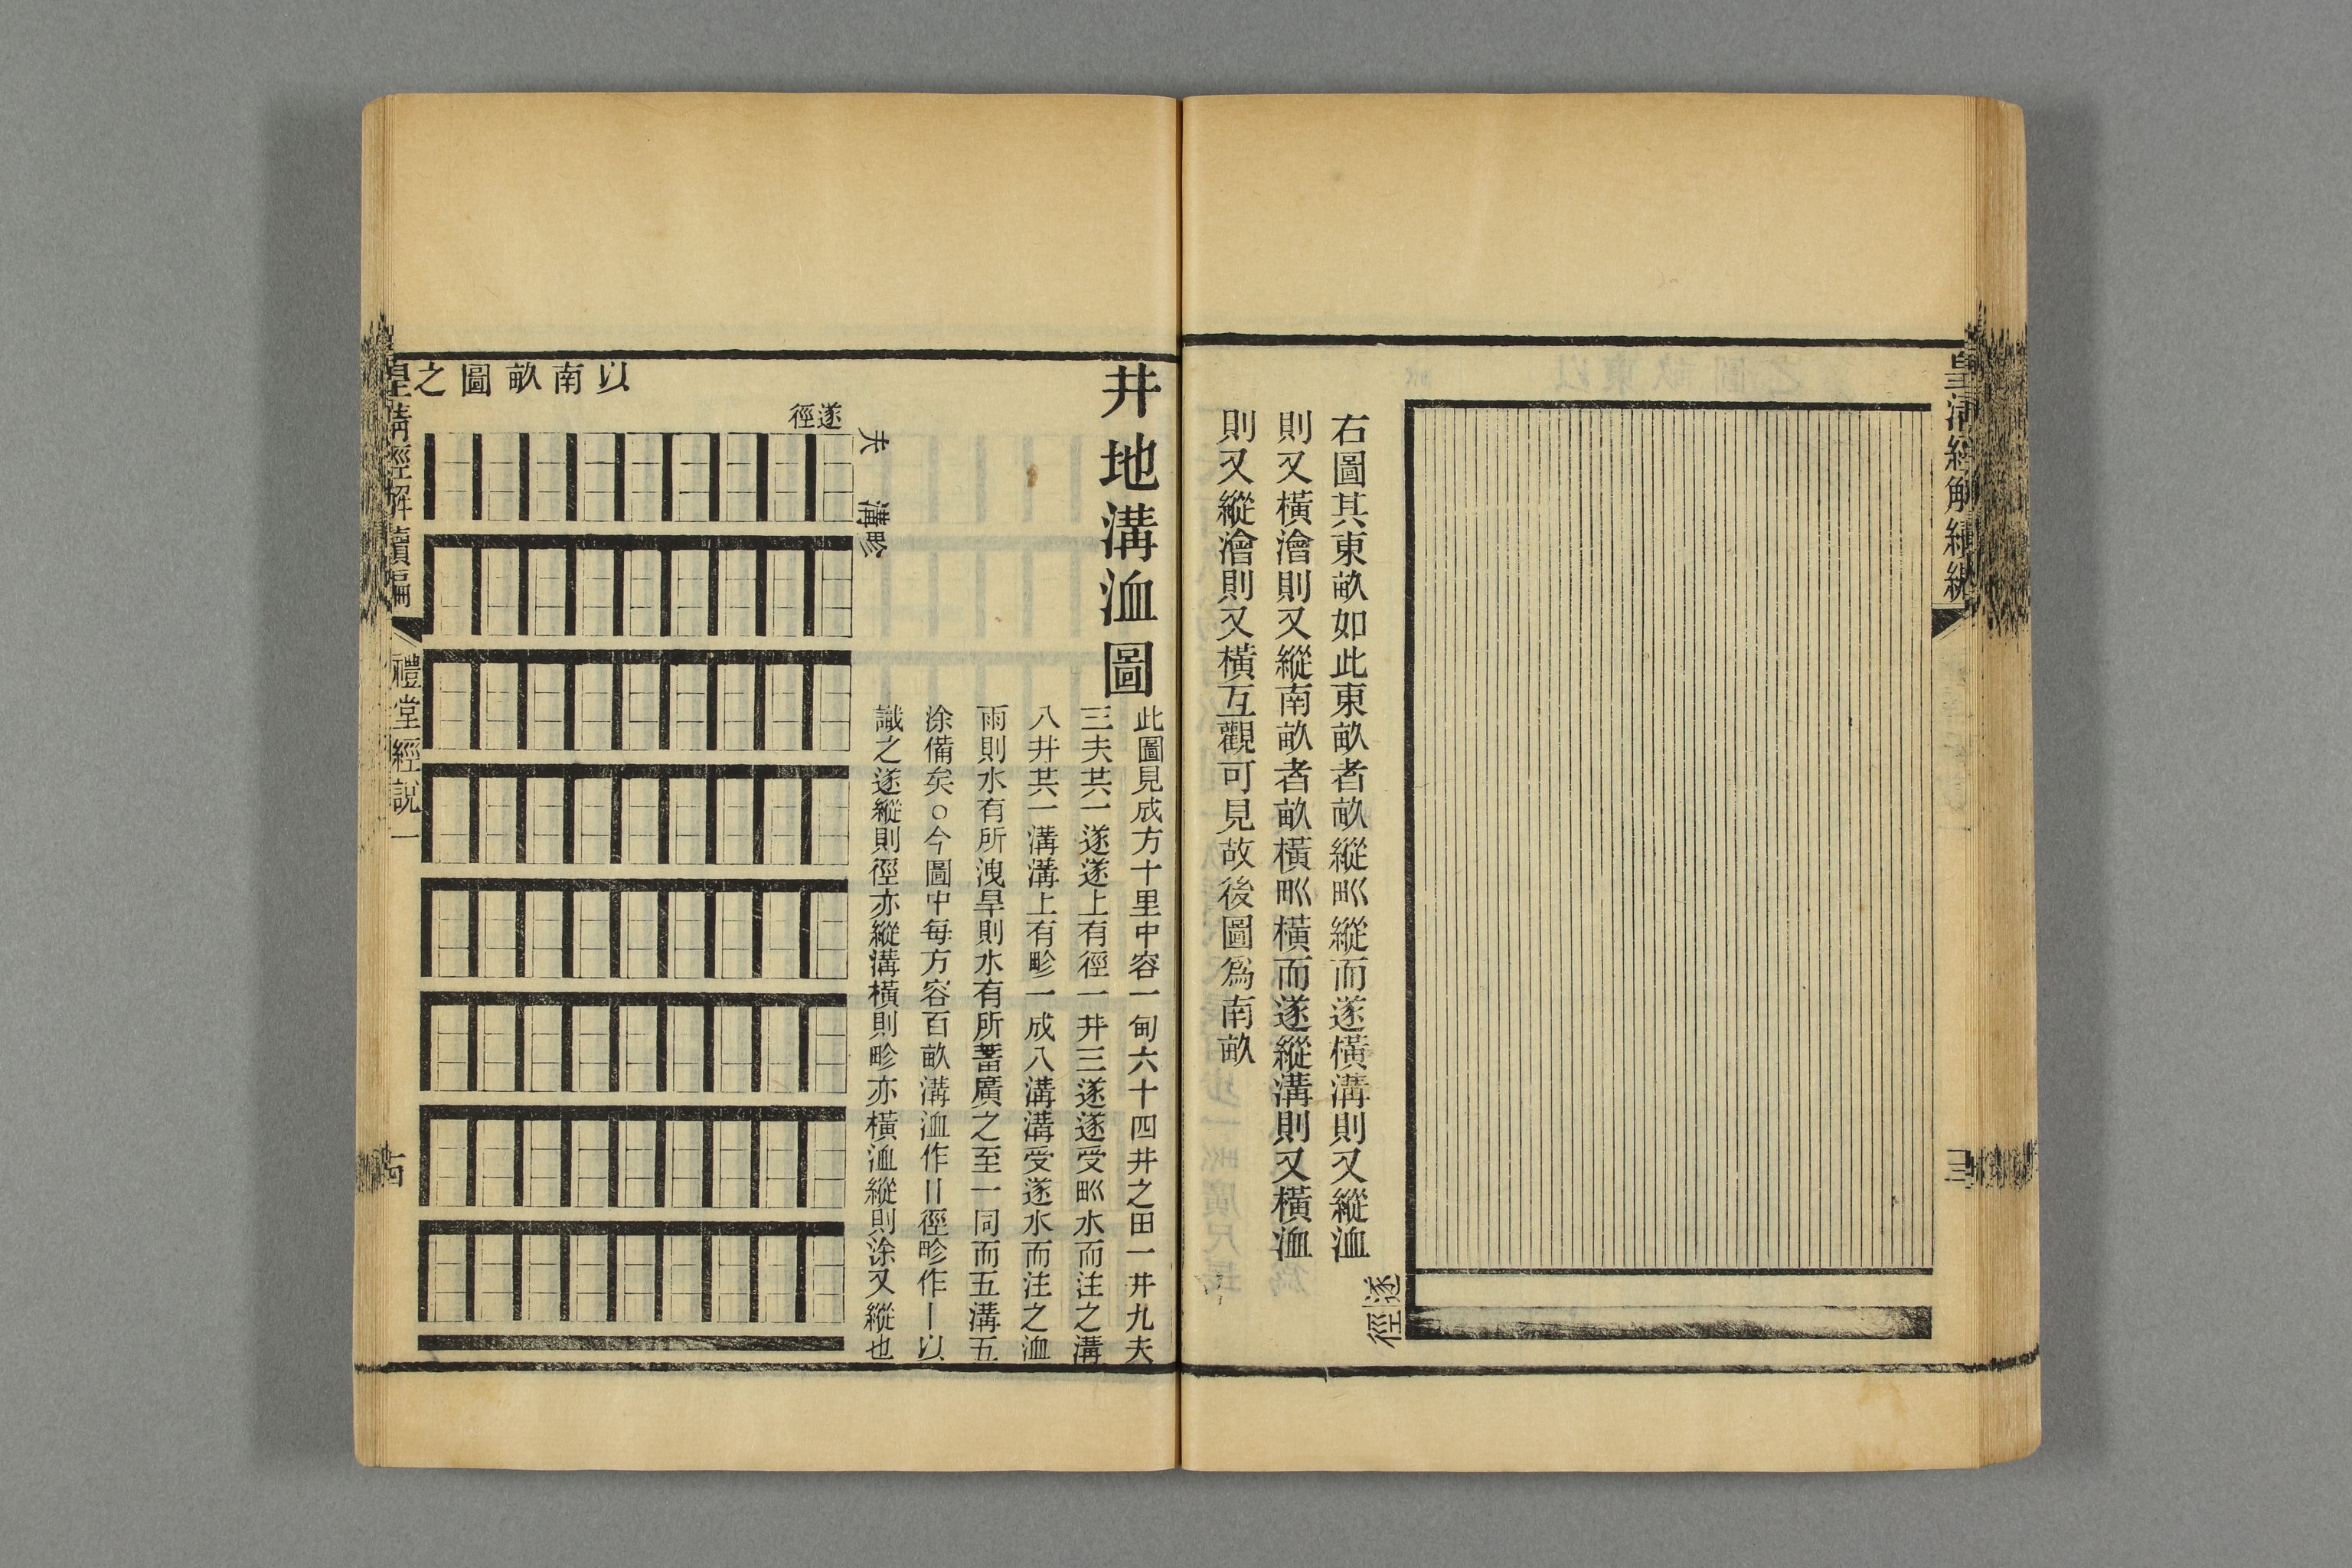 皇清經解續編
遂徑
右圖其東畝如此東畝者畝縱甽縱而遂橫溝則又縱洫
則又橫澮則又縱南畝者畝橫甽橫而遂縱溝則又橫洫
則又縱澮則又橫互觀可見故後圖爲南畝
井地溝洫圖
此圖見成方十里中容一甸六十四井之田一井九夫
三夫共一遂遂上有徑一井三遂遂受甽水而注之溝
八井共一溝溝上有畛一成八溝溝受遂水而注之洫
雨則水有所洩旱則水有所蓄廣之至一同而五溝五
涂備矣○今圖中每方容百畝溝洫作〢徑畛作〡以
識之遂縱則徑亦縱溝橫則畛亦橫洫縱則涂又縱也
以南畝圖之
遂徑
夫
溝畛
皇清經解續編
禮堂經說一